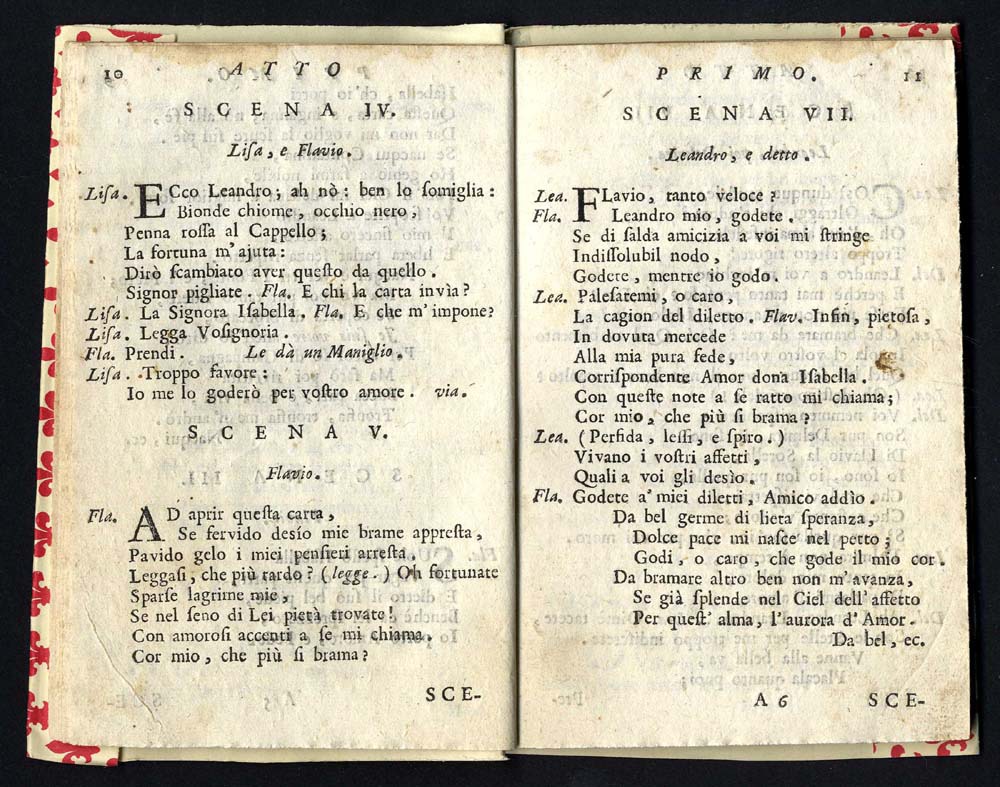 10 ATTO
SCENA IV.
Liſa, e Flavio.
Liſa. ECco Leandro; ah nò: ben lo ſomiglia:
Bionde chiome, occhio nero,
Penna roſſa al Cappello;
La fortuna m'ajuta:
Dirò ſcambiato aver queſto da quello.
Signor pigliate. Fla. E chi la carta invìa?
Liſa. La Signora Iſabella. Fla. E che m'impone?
Liſa. Legga Voſignoria.
Fla. Prendi. Le dà un Maniglio.
Liſa. Troppo favore:
Io me lo goderò per voſtro amore. via.
SCENA V.
Flavio.
Fla. AD aprir queſta carta,
Se fervido desío mie brame appreſta,
Pavido gelo i miei penſieri arreſta.
Leggaſi, che più tardo? (legge.) Oh fortunate
Sparſe lagrime mie,
Se nel ſeno di Lei pietà trovate!
Con amoroſi accenti a ſe mi chiama.
Cor mio, che più ſi brama?
SCE-
PRIMO. 11
SCENA VII.
Leandro, e detto.
Lea. FLavio, tanto veloce?
Fla. Leandro mio, godete.
Se di ſalda amicizia a voi mi ſtringe
Indiſſolubil nodo,
Godete, mentre io godo.
Lea. Paleſatemi, o caro,
La cagion del diletto. Flav. Inſin, pietoſa,
In dovuta mercede
Alla mia pura fede,
Corriſpondente Amor dona Iſabella.
Con queſte note a ſe ratto mi chiama;
Cor mio, che più ſi brama?
Lea. (Perfida, leſſi, e ſpiro.)
Vivano i voſtri affetti,
Quali a voi gli desìo.
Fla. Godete a' miei diletti, Amico addìo.
Da bel germe di lieta ſperanza,
Dolce pace mi naſce nel petto;
Godi, o caro, che gode il mio cor.
Da bramare altro ben non m'avanza,
Se già ſplende nel Ciel dell'affetto
Per queſt' alma, l'aurora d'Amor.
Da bel, ec.
A 6 SCE-